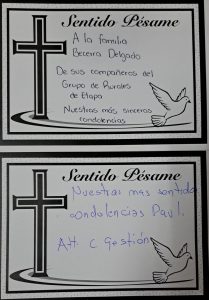 Sentido Pésame
A la familia
Becerra Delgado
De sus compañeros del
Grupo de Rurales
de Etapa
Nuestras más sinceras
condolencias
Sentido Pésame
Nuestras mas sentida
condolencias Paul.
Att. C Gestión